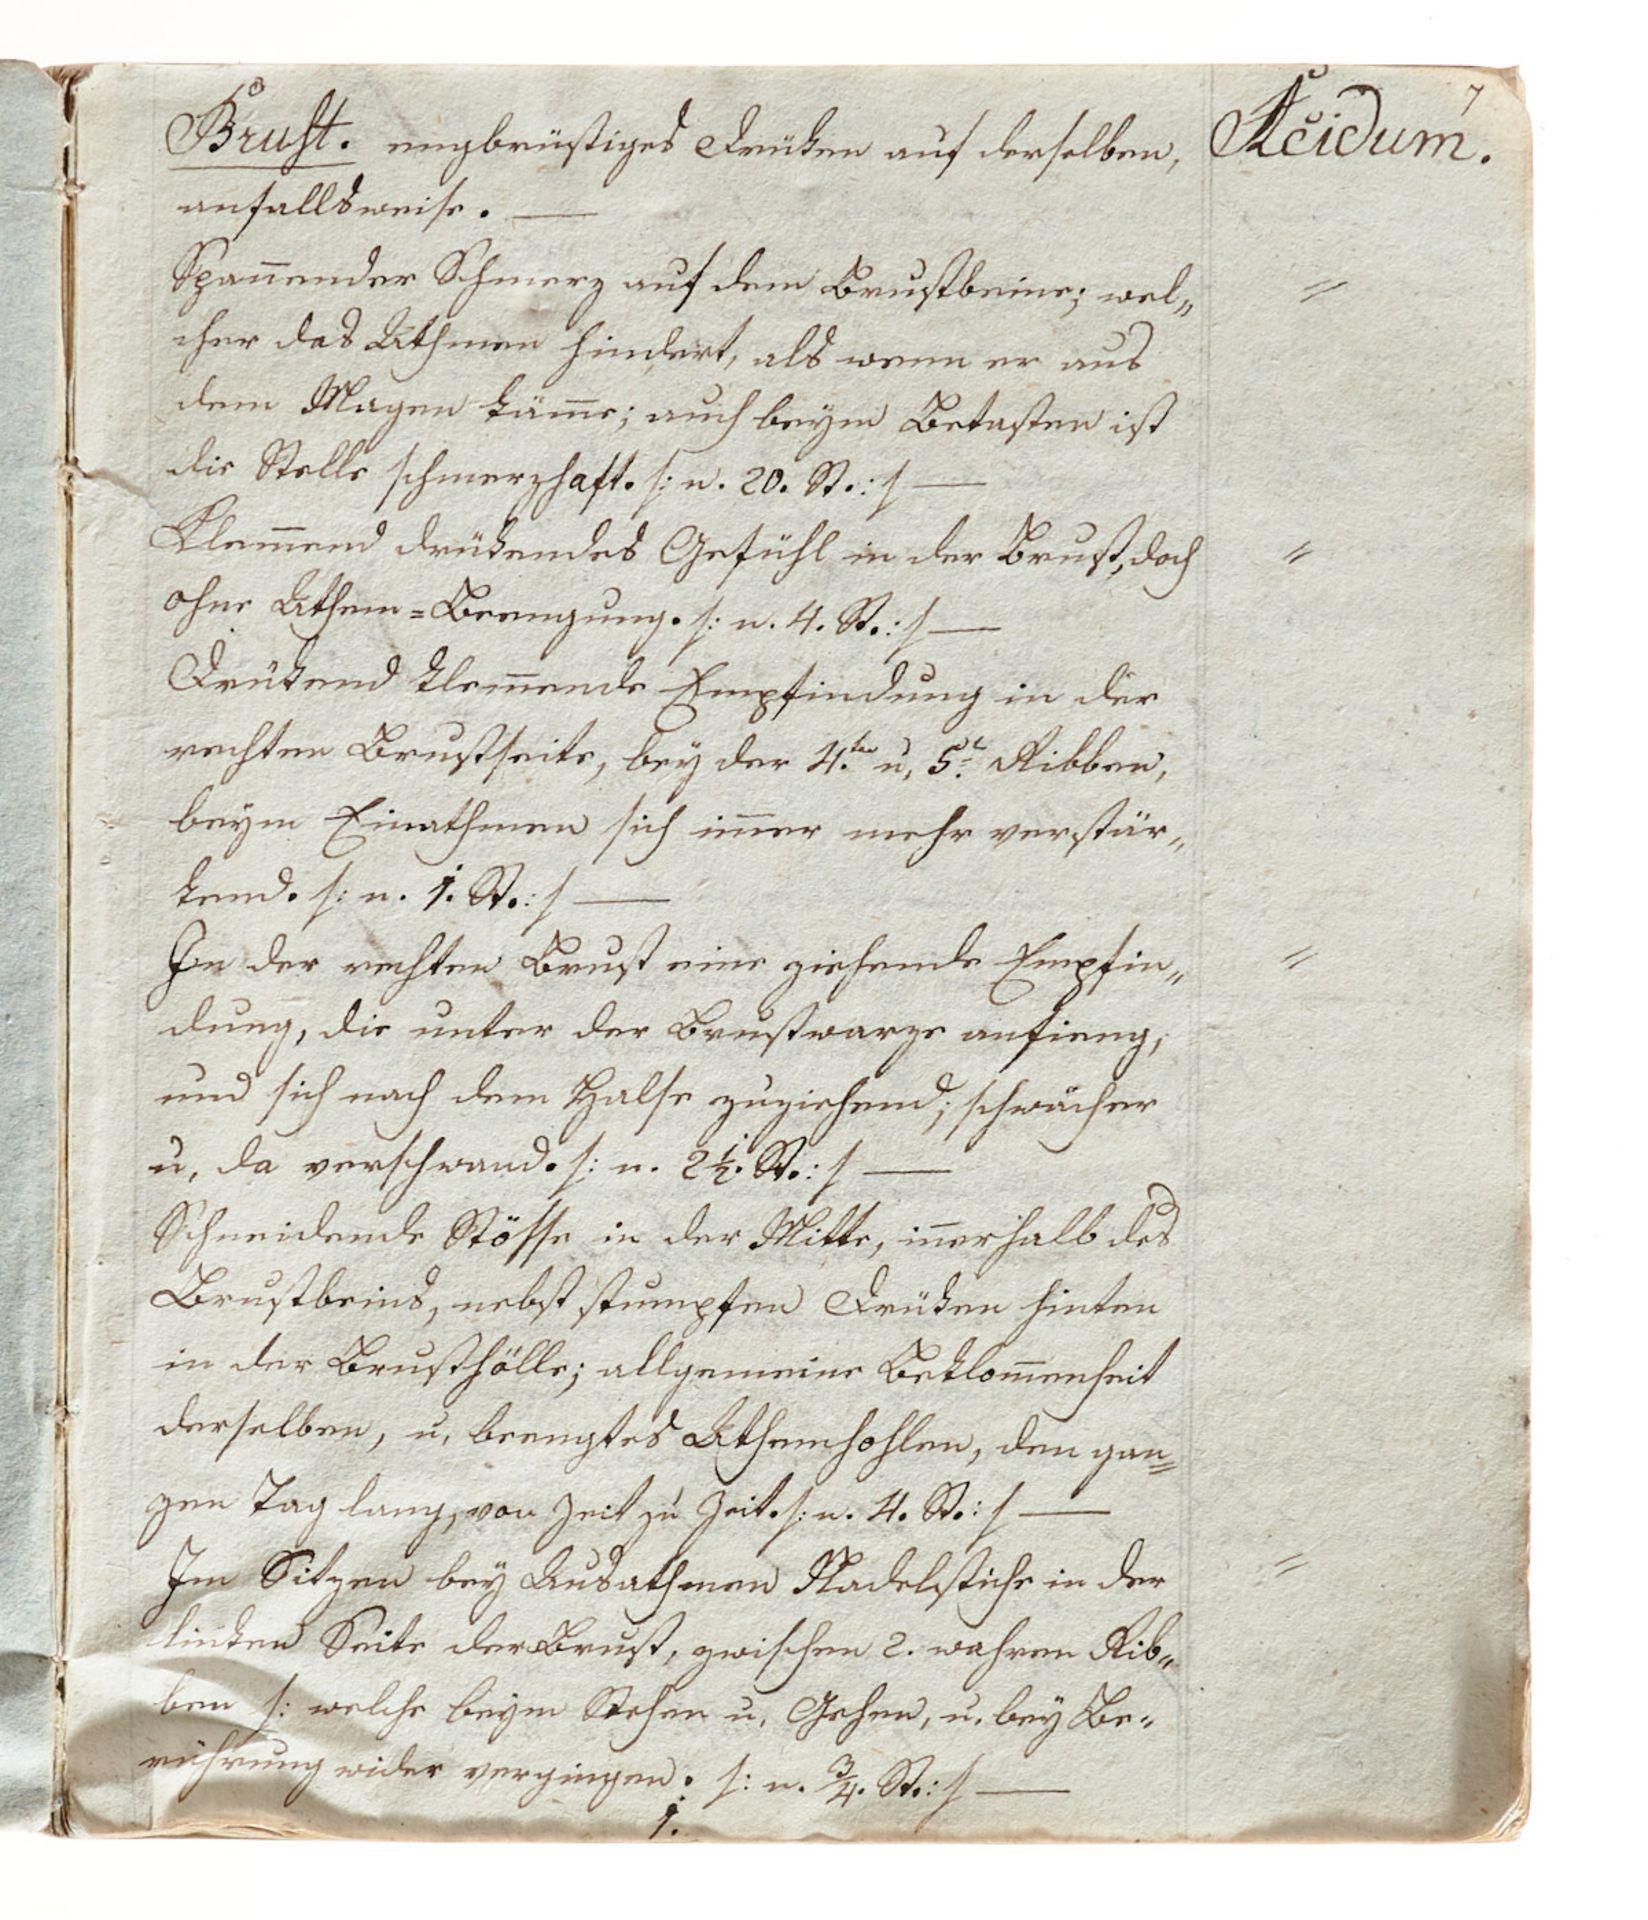 7
Brust. engbrüstiges Drüken auf derselben, Acidum.
anfallsweise. —
Spañender Schmerz auf dem Brustbeine; wel„ "
cher das Athmen hindert, als wenn er aus
dem Magen käm̃e; auch beym Betasten ist
die Stelle schmerzhaft. /: n. 20. St. :/ —
Klem̃end drükendes Gefühl in der Brust, doch "
ohne Athem=Beengung. /: n. 4. St. :/ —
Drükend klem̃ende Empfindung in der
rechten Brustseite, bey der 4.ten u, 5.t Ribben,
beym Einathmen sich im̃er mehr verstär„
kend. /: n. 1. St. :/ —
In der rechten Brust eine ziehende Empfin„ "
dung, die unter der Brustwarze anfieng,
und sich nach dem Halse zuziehend; schwächer
u, da verschwand. /: n. 2½. St. :/ —
Schneidende Stösse in der Mitte, iñerhalb des
Brustbeins, nebst stumpfen Drüken hinten
in der Brusthölle; allgemeine Beklom̃enheit
derselben, u, beengtes Athemhohlen, den gan=
zen Tag lang, von Zeit zu Zeit. /: n. 4. St. :/ —
Im Sitzen bey Ausathmen Nadelstiche in der "
linken Seite der Brust, zwischen 2. wahren Rib„
ben /: welche beym Stehen u, Gehen, u, bey Be„
rührung wider vergingen. /: n. ¾. St. :/ —
1.